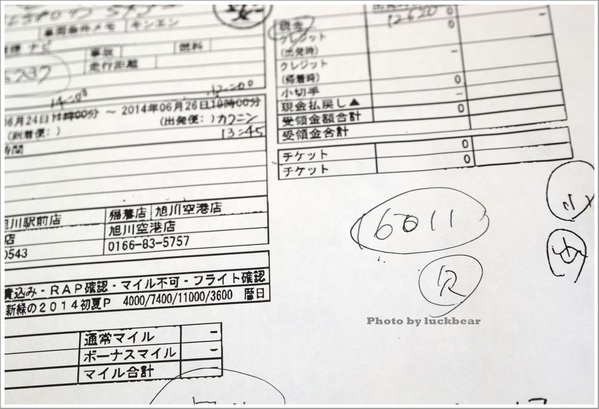 車両条件メモ キンエン
ナビ
事故 燃料
走行距離
5237
14:00 12:00
06月24日 11時00分 ～ 2014年06月26日 10時00分
(到着便: ) (出発便: ) カクニン
13:45
時間
旭川駅前店 帰着店 旭川空港店
店 旭川空港店
0543 0166-83-5757
費込み・RAP確認・マイル不可・フライト確認
新緑の2014初夏P 4000/7400/11000/3600 暦日
通常マイル -
ボーナスマイル -
マイル合計
現金 12620 0 -
クレジット 0
(出発時) -
クレジット
(帰着時) 0
小切手 -
現金払戻し▲ 0
受領金額合計 0
受領金合計
チケット 0
チケット 0
6011
Photo by luckbear